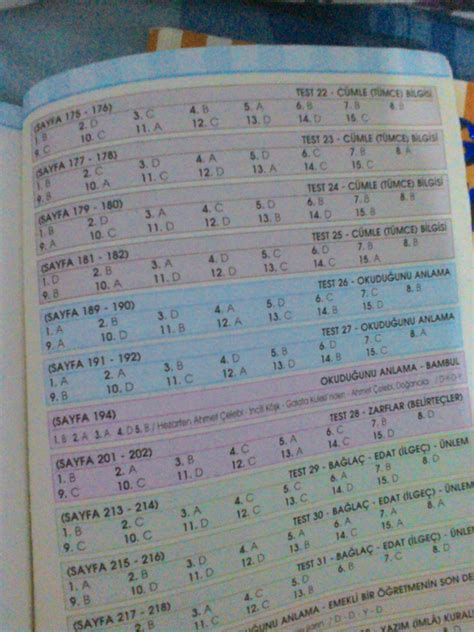 (SAYFA 175 - 176) TEST 22 - CÜMLE (TÜMCE) BİLGİSİ
1. B 2. D 3. C 4. B 5. A 6. B 7. B 8. B
9. C 10. C 11. A 12. C 13. D 14. D 15. C
(SAYFA 177 - 178) TEST 23 - CÜMLE (TÜMCE) BİLGİSİ
1. B 2. C 3. A 4. A 5. D 6. C 7. B 8. A
9. B 10. A 11. D 12. D 13. A 14. C 15. C
(SAYFA 179 - 180) TEST 24 - CÜMLE (TÜMCE) BİLGİSİ
1. B 2. D 3. A 4. C 5. D 6. B 7. B 8. B
9. A 10. C 11. D 12. D 13. B 14. D 15. B
(SAYFA 181 - 182) TEST 25 - CÜMLE (TÜMCE) BİLGİSİ
1. D 2. B 3. A 4. A 5. D 6. B 7. B 8. B
9. B 10. A 11. D 12. D 13. C 14. C 15. A
(SAYFA 189 - 190) TEST 26 - OKUDUĞUNU ANLAMA
1. A 2. B 3. D 4. A 5. D 6. C 7. C 8. B
9. A 10. D 11. B 12. A 13. C 14. B 15. A
(SAYFA 191 - 192) TEST 27 - OKUDUĞUNU ANLAMA
1. A 2. B 3. A 4. D 5. B 6. C 7. C 8. D
9. B 10. D 11. C 12. A 13. D 14. B 15. C
(SAYFA 194) OKUDUĞUNU ANLAMA - BAMBUL
1. B 2. A 3. A 4. D 5. B / Hezarfen Ahmet Çelebi - İncili Köşk - Galata Kulesi'nden - Ahmet Çelebi, Doğancılar
(SAYFA 201 - 202) TEST 28 - ZARFLAR (BELİRTEÇLER)
1. B 2. A 3. B 4. C 5. A 6. A 7. B 8. D
9. C 10. C 11. D 12. C 13. A 14. C 15. D
(SAYFA 213 - 214) TEST 29 - BAĞLAÇ - EDAT (İLGEÇ) - ÜNLEM
1. B 2. C 3. A 4. C 5. C 6. D 7. B
9. C 10. C 11. D 12. B 13. D 14. D 15. A
(SAYFA 215 - 216) TEST 30 - BAĞLAÇ - EDAT (İLGEÇ) - ÜNLEM
1. A 2. B 3. D 4. A 5. A 6. C 7. A 8. C
9. B 10. D 11. D 12. A 13. B 14. C 15. A
(SAYFA 217 - 218) TEST 31 - BAĞLAÇ - EDAT (İLGEÇ) - ÜNLEM
5. D 6. B 7. C 8. D
OKUDUĞUNU ANLAMA - EMEKLİ BİR ÖĞRETMENİN SON DE
D - D - Y - D
YAZIM (İMLÂ) KURAL